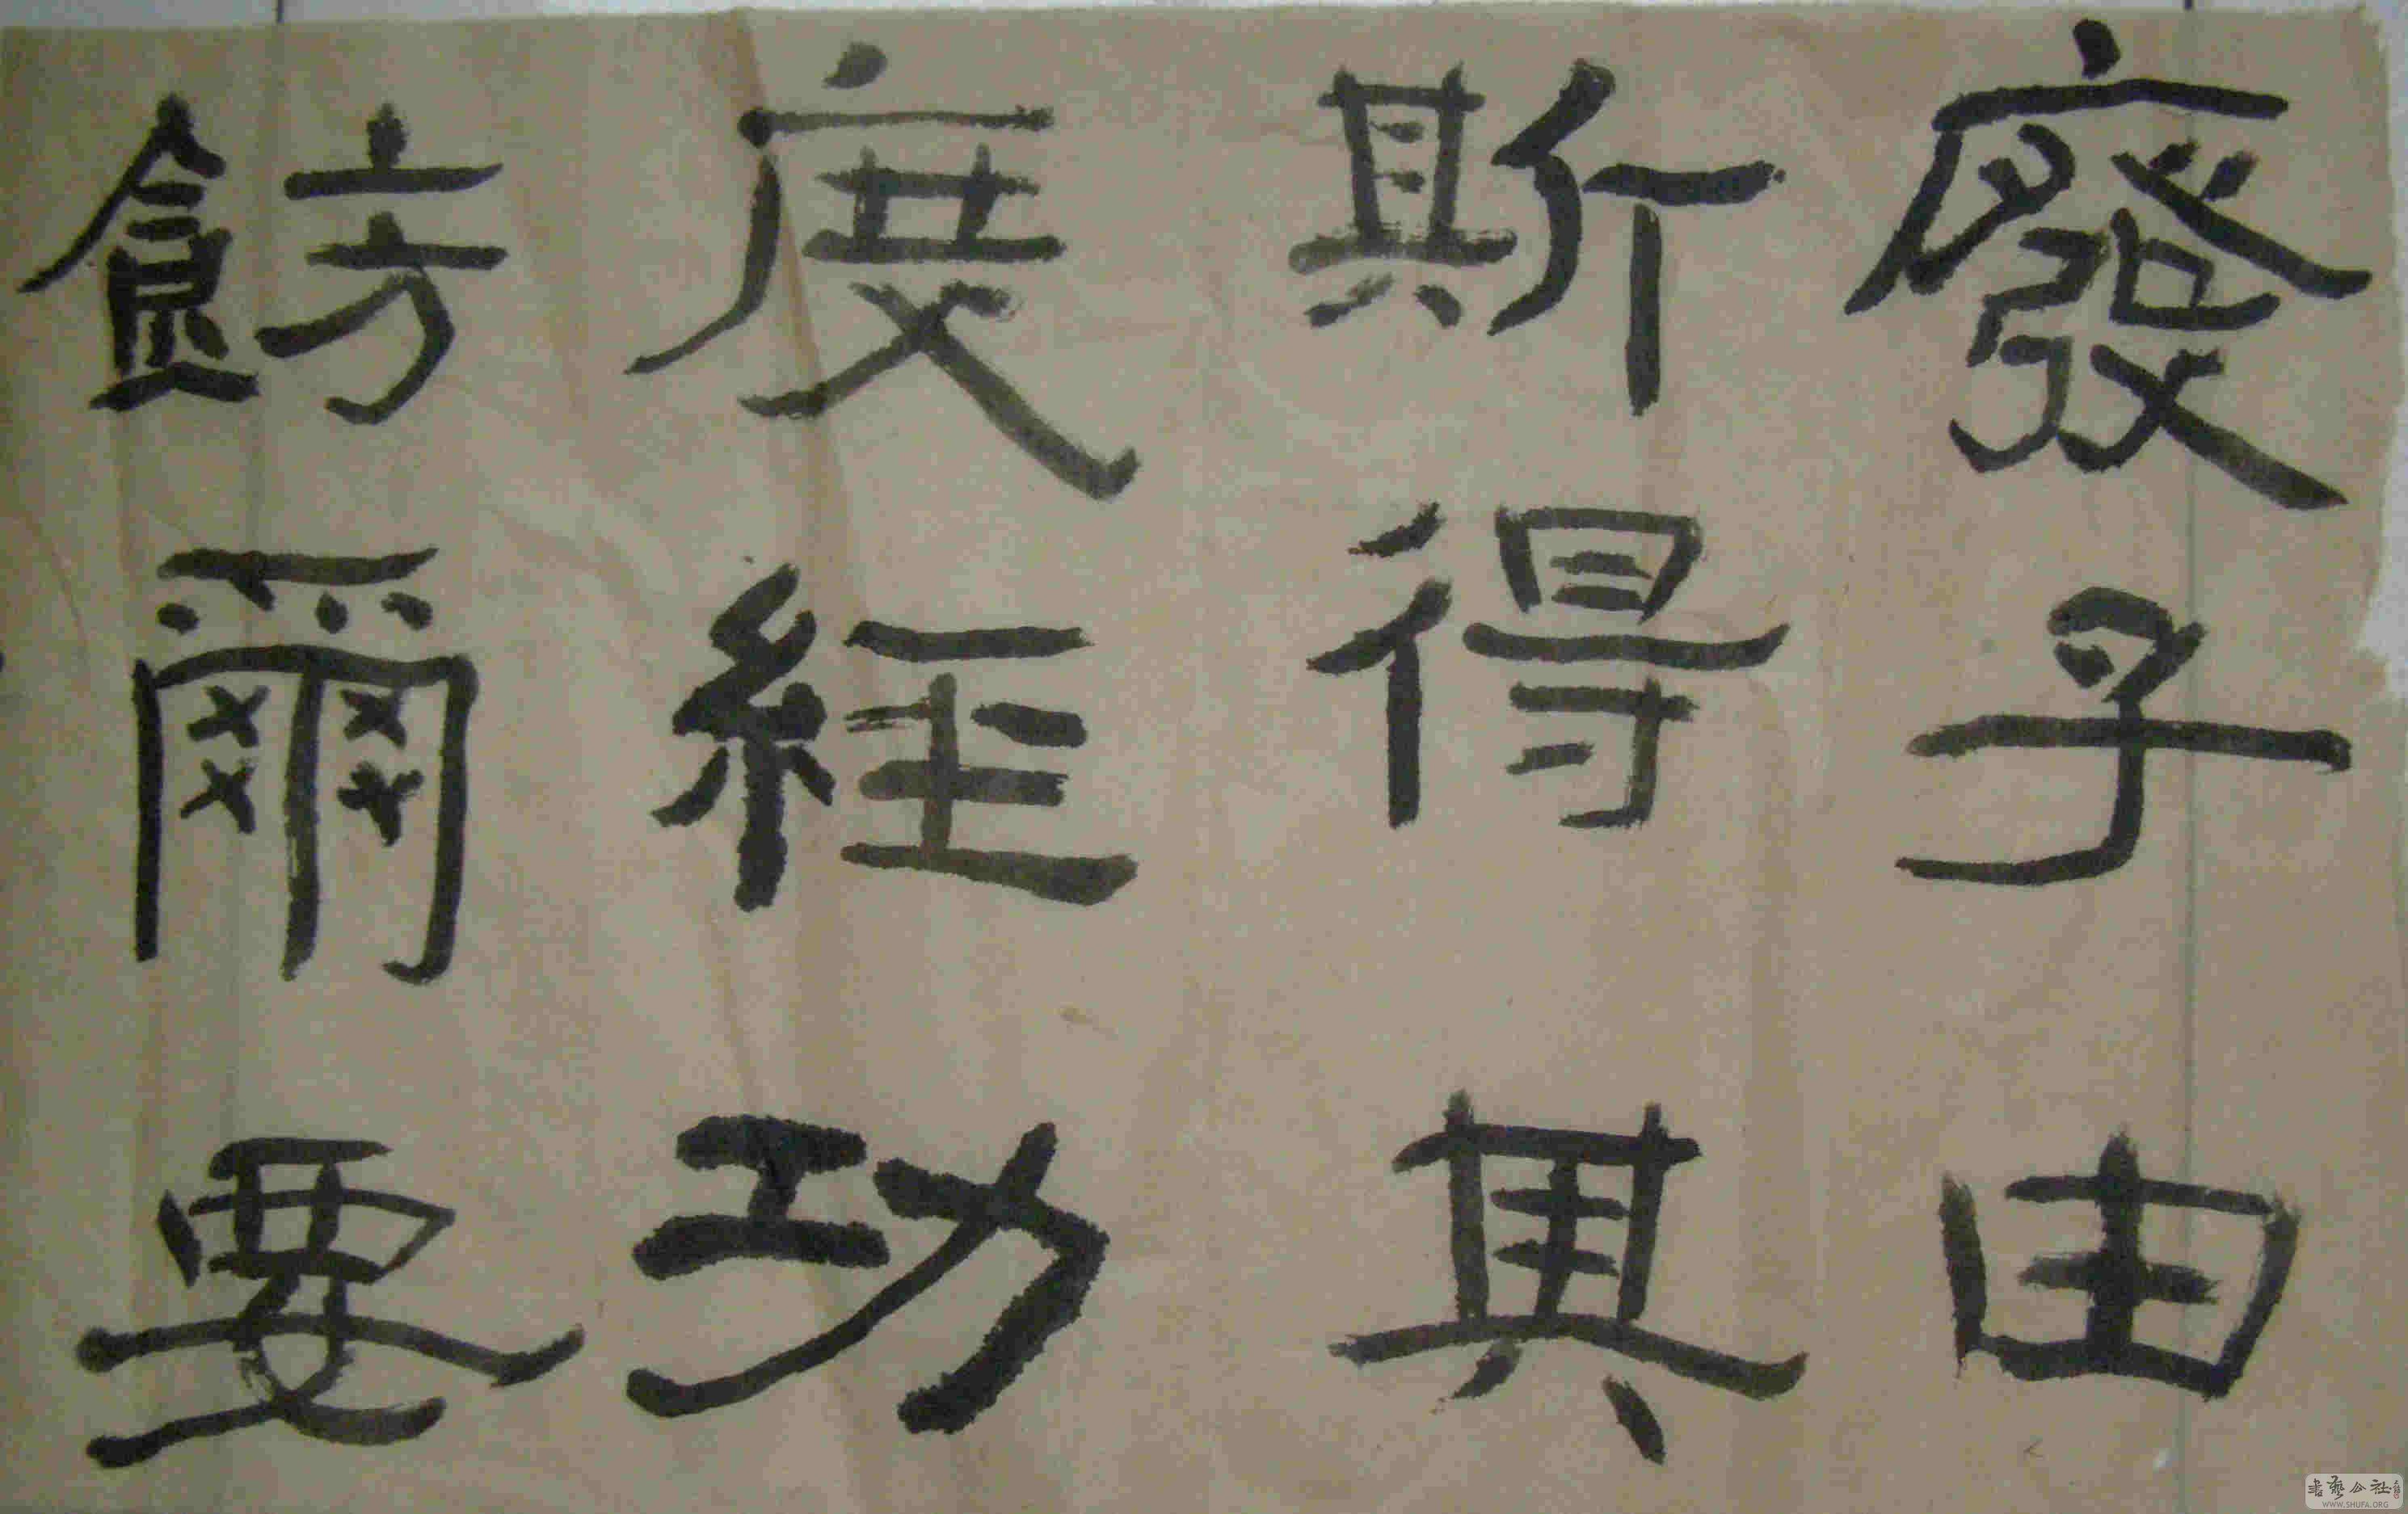 廢子由
斯得其
度經功
飭爾要
書藝公社
WWW.SHUFA.ORG